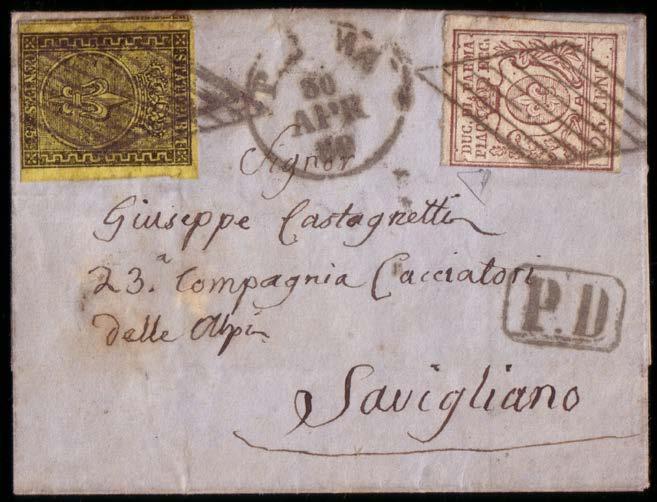 STATI PARM
CENTES. 5
30
APR
59
DUC. DI PARMA
PIAC. ECC.
25 CENT.
Signor
Giuseppe Castagnetti
23.a Compagnia Cacciatori
delle Alpi
P.D
Savigliano